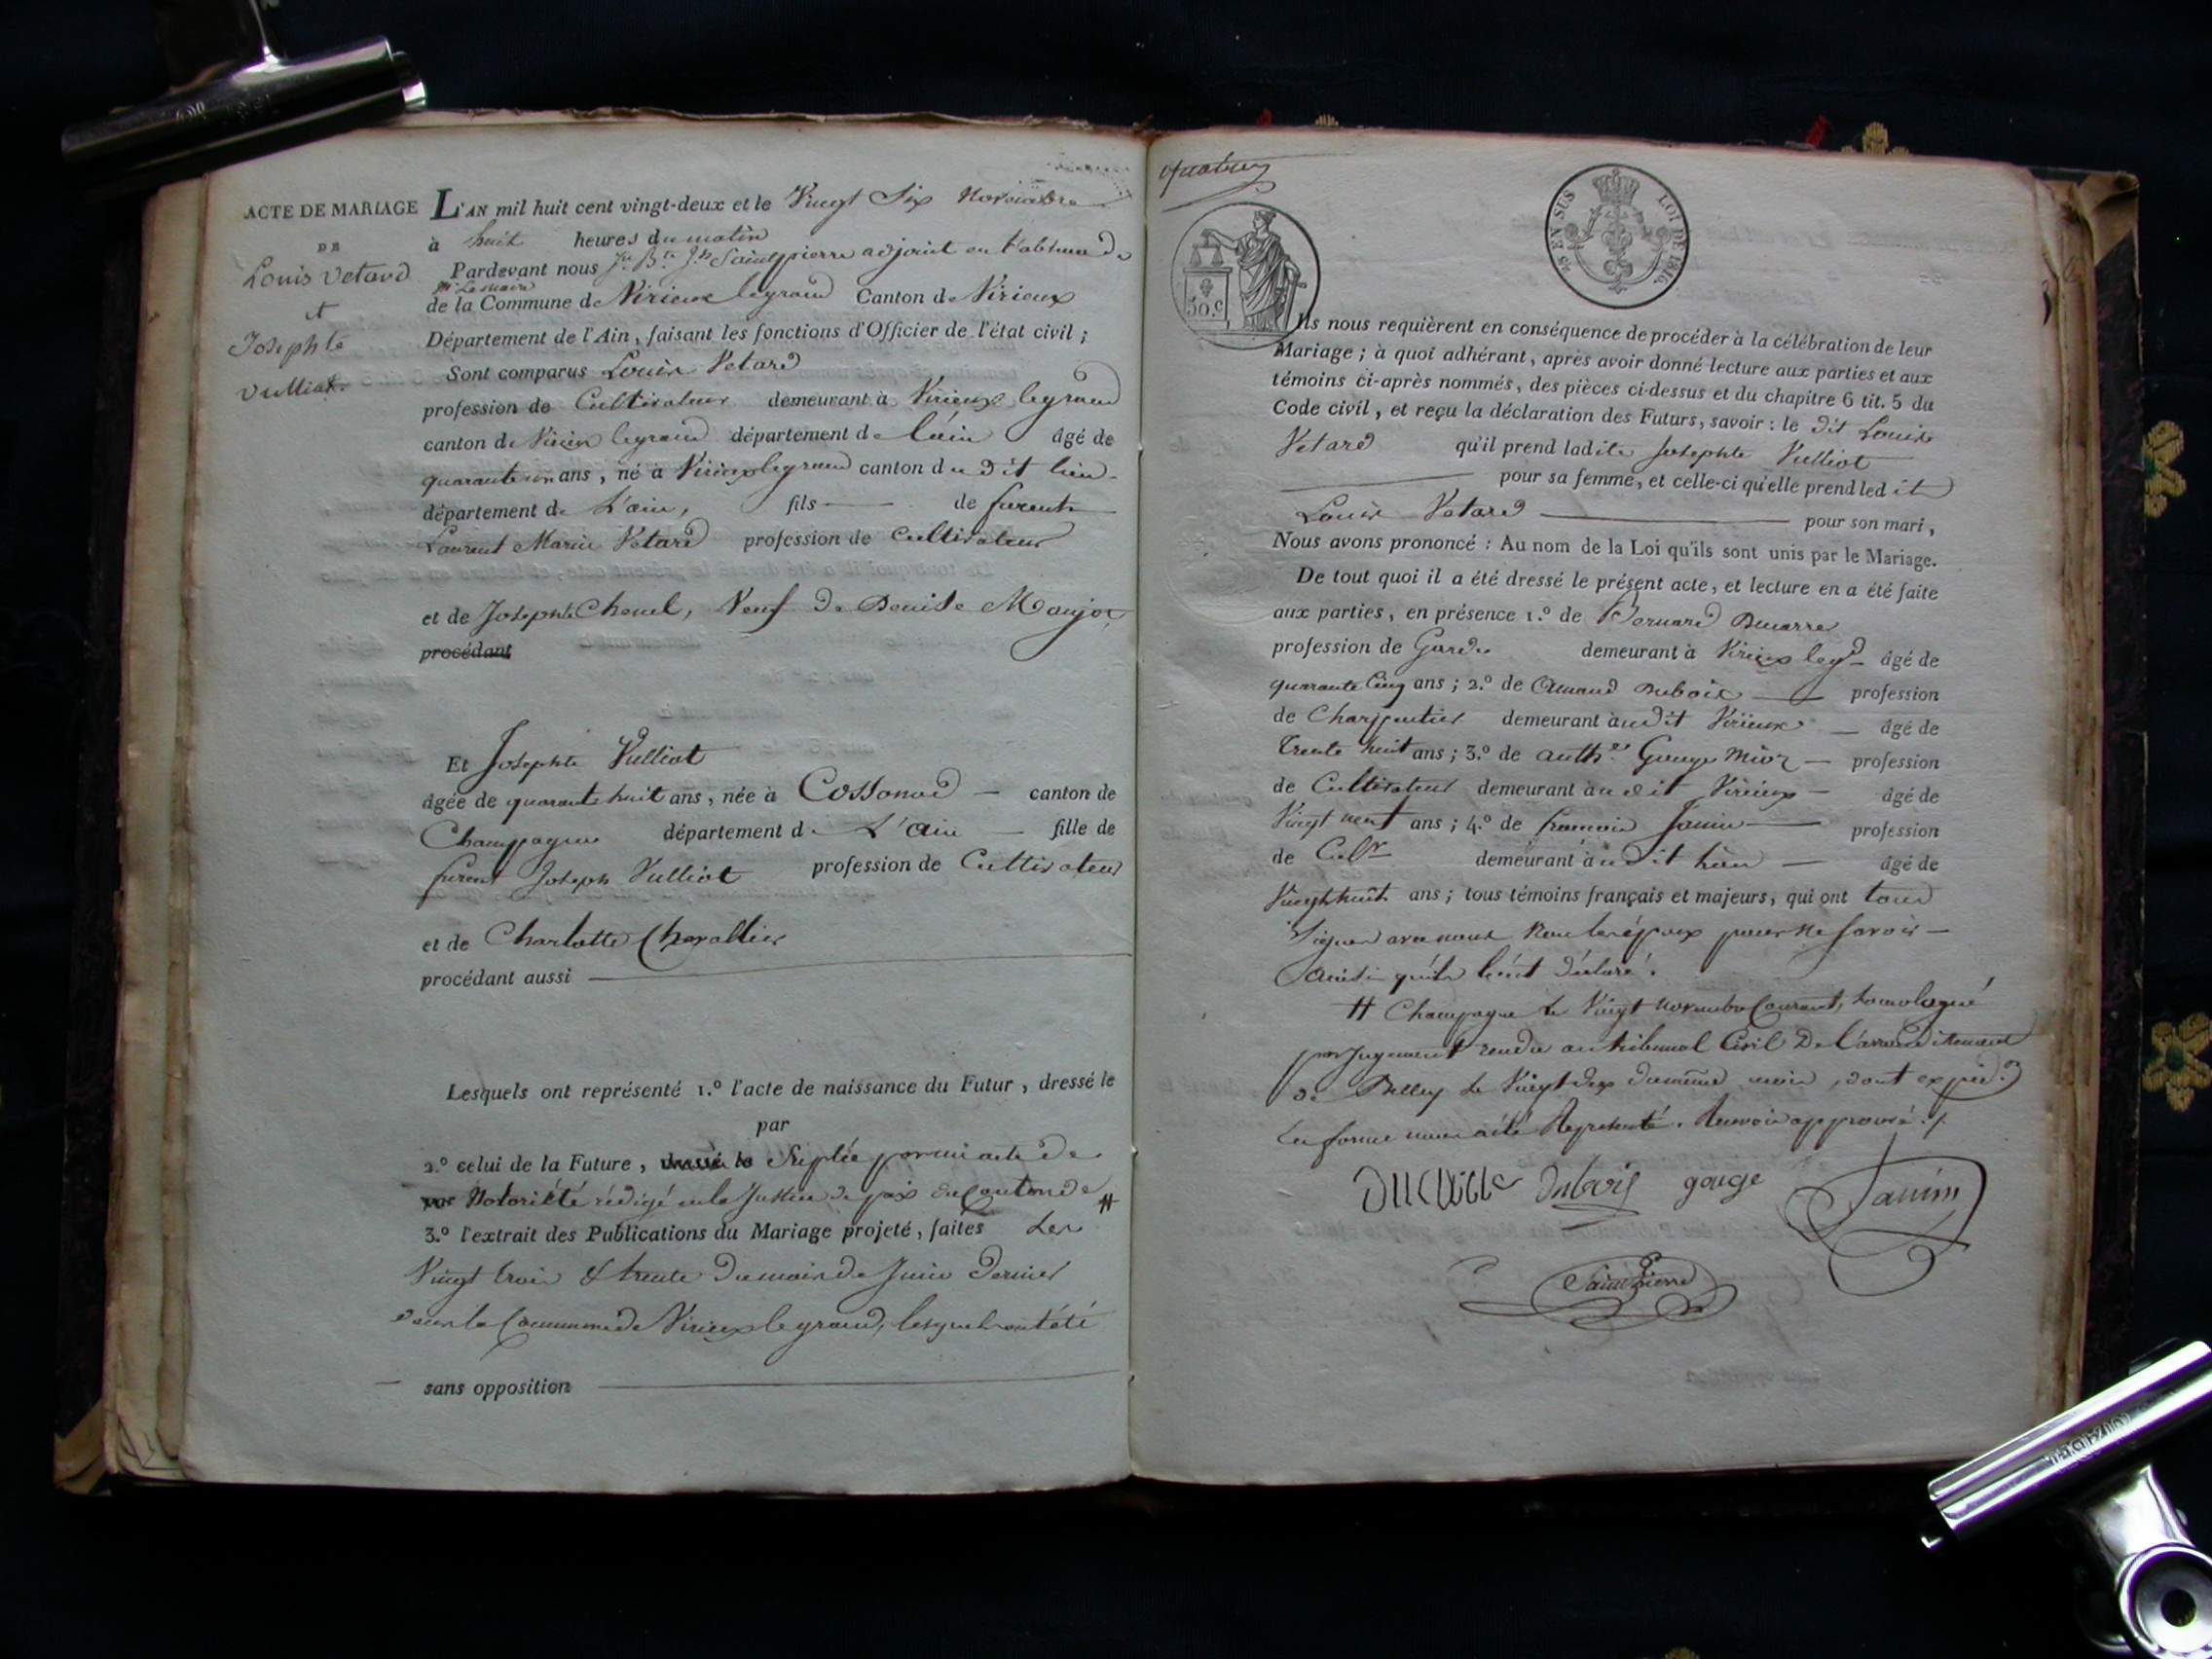 ACTE DE MARIAGE
DE
Louis Vetard
et
Josephte
Vulliot.
L'AN mil huit cent vingt-deux et le Vingt Six Novembre
à huit heures du matin
Pardevant nous Jn. Bte. Jh. Saintpierre adjoint en l'absence de
Mr. Le Maire
de la Commune de Virieux legrand Canton de Virieux
Département de l'Ain, faisant les fonctions d'Officier de l'état civil ;
Sont comparus Louis Vetard
profession de Cultivateur demeurant à Virieux legrand
canton de Virieux legrand département de L'ain âgé de
quarante un ans, né à Virieux legrand canton du dit lieu
département de L'ain, fils de furent
Laurent Marin Vetard profession de Cultivateur
et de Josephte Chenel, Veuf de Denise
procédant
Et Josephte Vulliot
âgée de quarante huit ans, née à Cossonod canton de
Champagne département de L'ain fille de
furent Joseph Vulliot profession de Cultivateur
et de Charlotte Chevallier
procédant aussi
Lesquels ont représenté 1.º l'acte de naissance du Futur, dressé le
par
2.º celui de la Future, dressé le Suplée par un acte de
par Notoriété rédigé en la Justice de paix du Canton de #
3.º l'extrait des Publications du Mariage projeté, faites Les
Vingt trois & trente du mois de Juin Dernier
dans la Commune de Virieux legrand, lesquels ont été
sans opposition
50 C
45 EN SUS LOI DE 1816.
Ils nous requièrent en conséquence de procéder à la célébration de leur
Mariage ; à quoi adhérant, après avoir donné lecture aux parties et aux
témoins ci-après nommés, des pièces ci-dessus et du chapitre 6 tit. 5 du
Code civil, et reçu la déclaration des Futurs, savoir : le dit Louis
Vetard qu'il prend ladite Josephte Vulliot
pour sa femme, et celle-ci qu'elle prend led it
Louis Vetard pour son mari,
Nous avons prononcé : Au nom de la Loi qu'ils sont unis par le Mariage.
De tout quoi il a été dressé le présent acte, et lecture en a été faite
aux parties, en présence 1.º de Bernard
profession de Garde demeurant à Virieux legd âgé de
quarante Cinq ans ; 2.º de Amand Dubois profession
de Charpentier demeurant audit Virieux âgé de
trente huit ans ; 3.º de anth.e Gouge profession
de Cultivateur demeurant audit Virieux âgé de
Vingt neuf ans ; 4.º de francois Janin profession
de Culr demeurant audit lieu âgé de
Vingt huit ans ; tous témoins français et majeurs, qui ont tous
Signer avec nous Non les époux pour ne savoir
ainsi qu'ils l'ont déclaré.
# Champagne le Vingt novembre Courant, homologué
par Jugement rendu au tribunal Civil De l'arrondissement
de Belley le Vingt deux du même mois, dont expéd.
En forme nous a été Représenté. Renvoi approuvé ./.
Dubois gouge Janin
Saintpierre